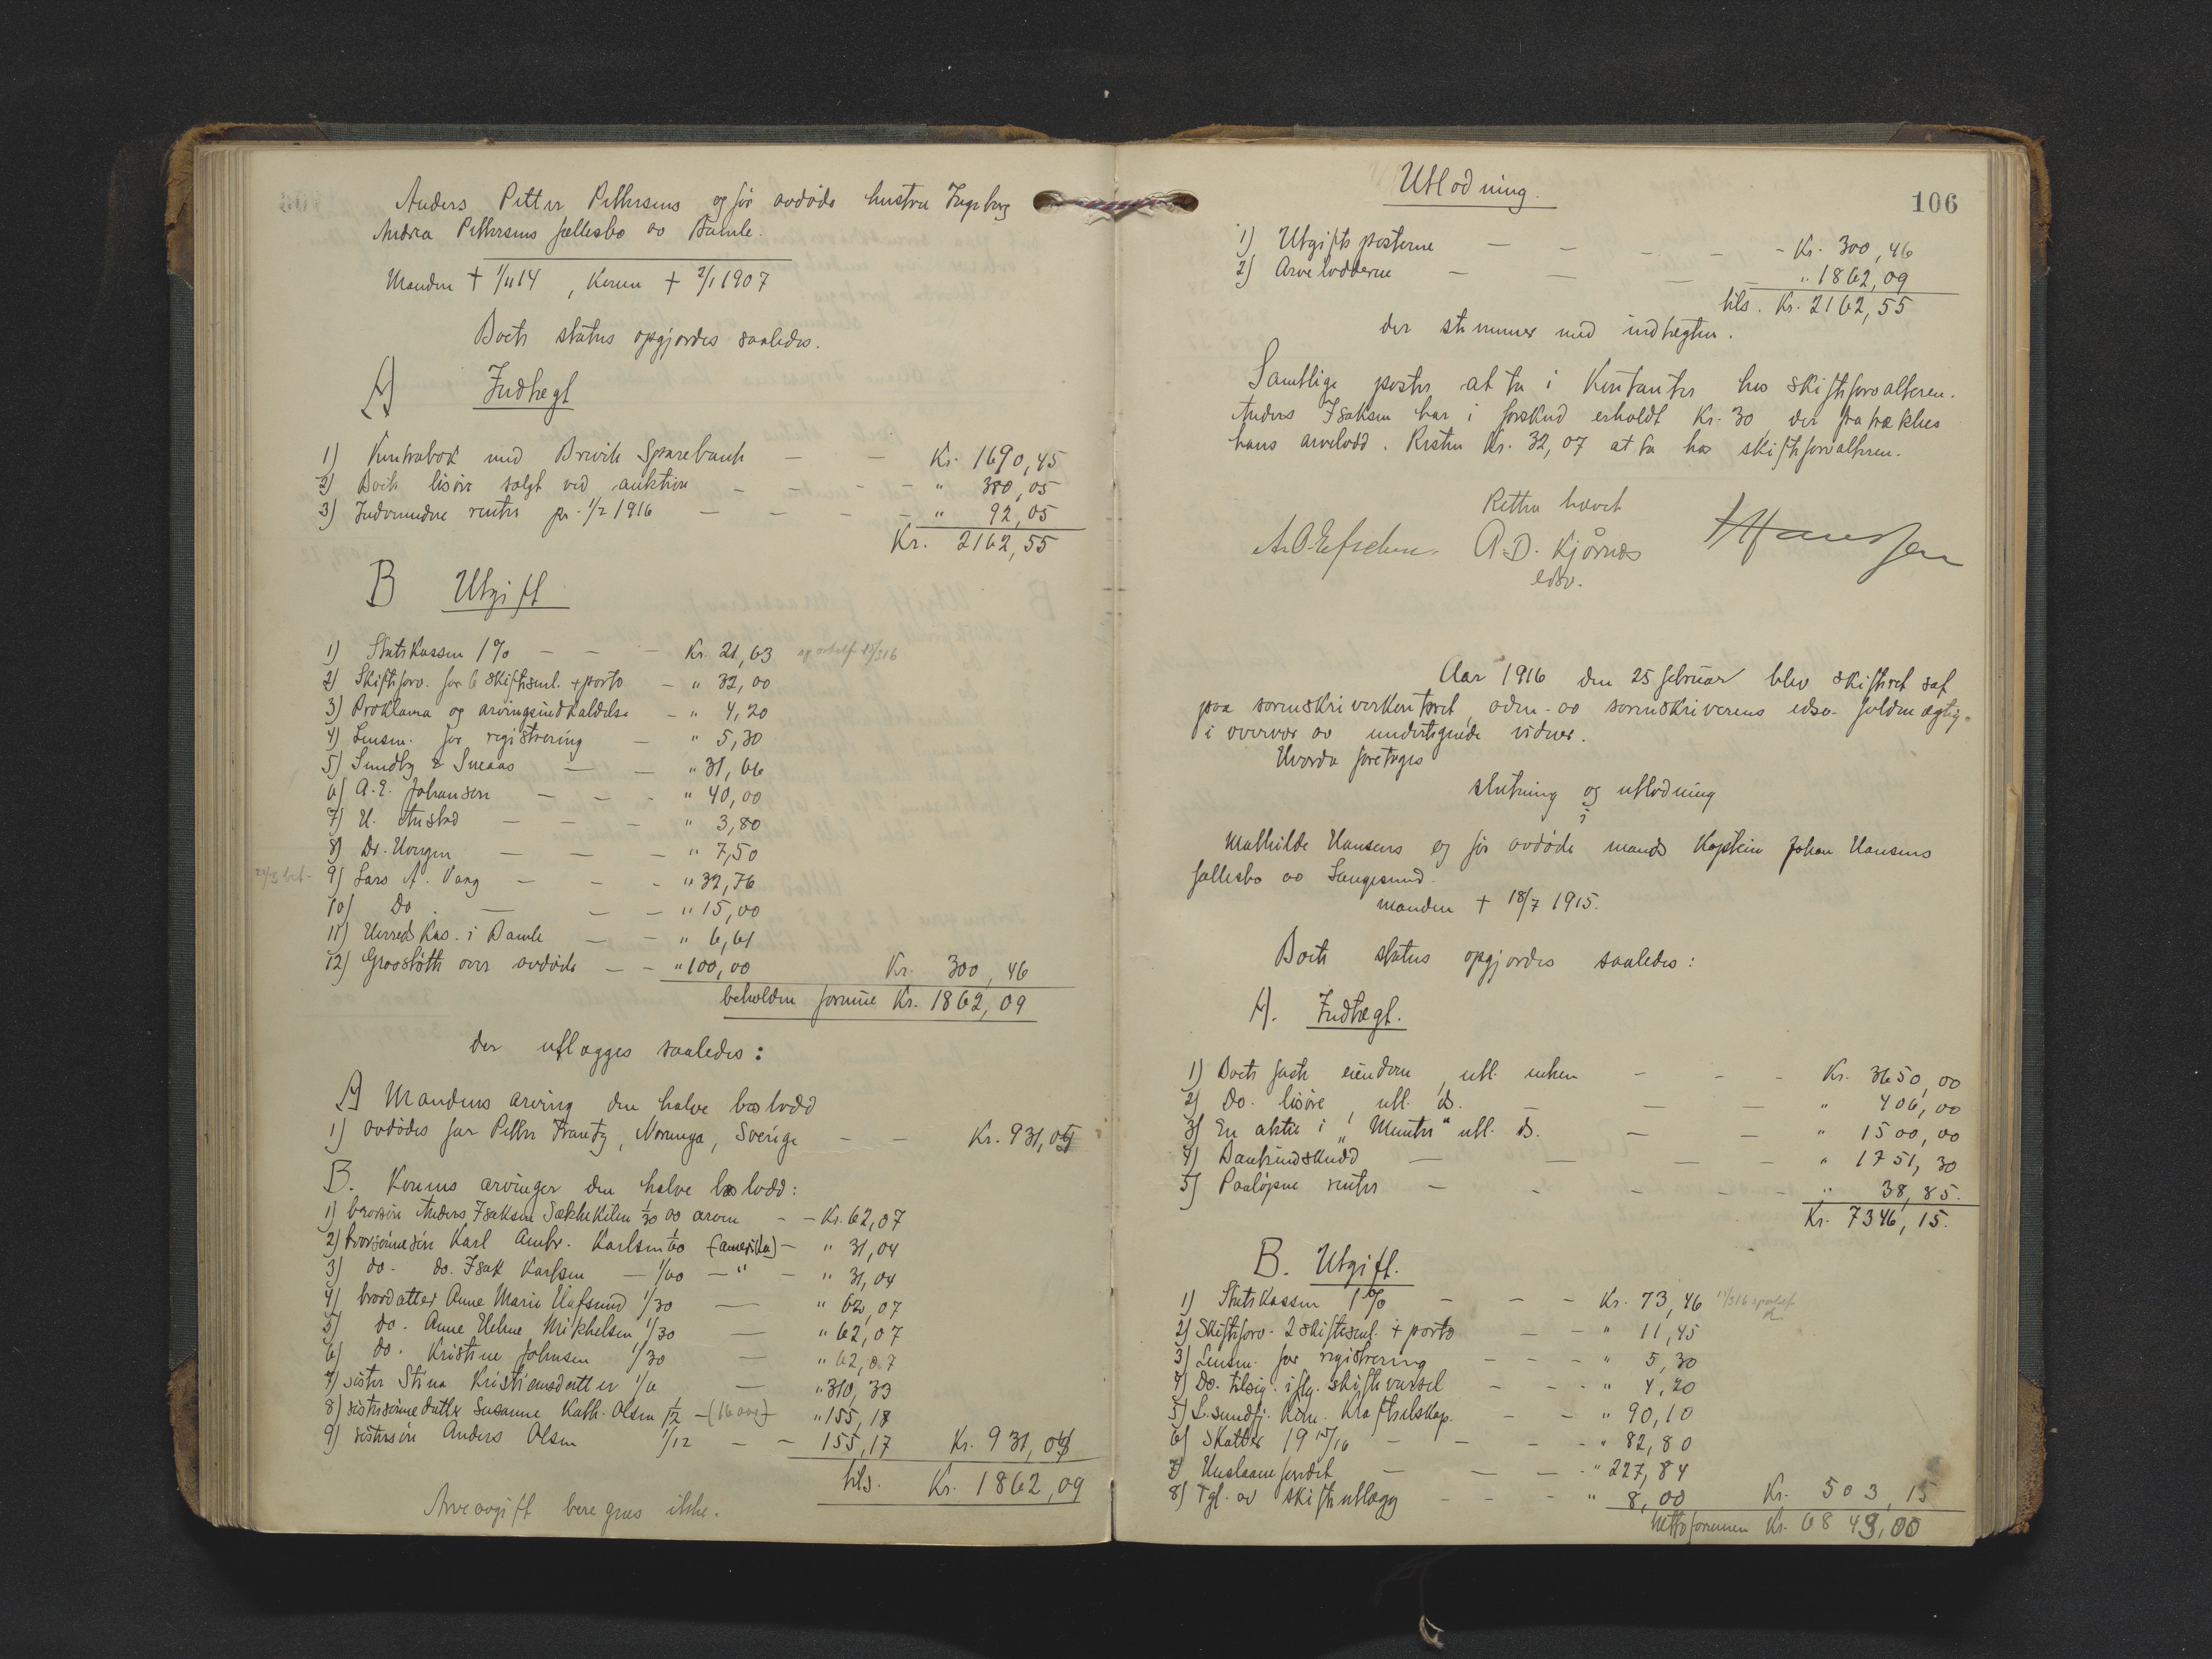 Anders Petter Pettersens og før avdøde hustru Ingeborg
Andrea Pettersens fællesbo av Bamle.
Manden † 1/11 14, Konen † 2/1 1907
Boets status opgjordes saaledes.
A) Indtægt
1) Kontrabok med Brevik Sparebank — — Kr. 1690,45
2) Boets løsøre solgt ved auktion — — — — " 380,05
3) Indvundne renter pr. 1/2 1916 — — — — " 92,05
Kr. 2162,55
B Utgift
1) Statskassen 1% — — — Kr. 21,63
2) Skifteforv. for 6 skiftesml. + porto — " 32,00
3) Proklama og arvingsindkaldelse — " 4,20
4) Lensm. for registrering — " 5,30
5) Sundby & Sneaas — — " 31,66
6) A. E. Johansen — — - " 40,00
7) H. Austad — — — " 3,80
8) Dr. Horgen — — — " 7,50
9) Lars A. Vang — — - " 32,76
10) Do. — — — " 15,00
11) Herredskas. i Bamle — — " 6,61
12) Gravstøtte over avdøde — — " 100,00 Kr. 300,46
beholden formue Kr. 1862,09
der utlægges saaledes:
A) Mandens arving den halve boslodd
1) avdødes far Petter Frantz, Norunga, Sverige — — Kr. 931,05
B. Konens arvinger den halve boslodd:
1) brorsøn Anders Isaksen Sækkekilen 1/30 av arven — — Kr. 62,07
2) brorsønnesøn Karl Ambr. Karlsen 1/60 (amerika) — " 31,04
3) do. do. Isak Karlsen — 1/60 — " — " 31,04
4) brordatter Anne Marie Hafsund 1/30 — " 62,07
5) do. Anne Helene Mikkelsen 1/30 — " 62,07
6) do. Kristine Johnsen 1/30 — " 62,07
7) søster Stina Kristiansdatter 1/6 — " 310,33
8) søstersønnedatter Susanne Kath. Olsen 1/12 — (16 aar) " 155,18
9) søstersøn Anders Olsen 1/12 — — 155,17 Kr. 931,04
tils. Kr. 1862,09
Arveavgift beregnes ikke.
106
Utlodning.
1) Utgiftsposterne — — — — — Kr. 300,46
2) Arveloddene — — — — " 1862,09
tils. Kr. 2162,55
der stemmer med indtægten.
Samtlige poster at ta i Kontanter hos skifteforvalteren.
Anders Isaksen har i forskud erholdt Kr. 30 der fratrækkes
hans arvelodd. Resten Kr. 32,07 at ta hos skifteforvalteren.
Retten hævet
A. D. Kjørnæs
edsv.
Aar 1916 den 25 februar blev skifteret sat
paa sorenskriverkontoret, adm. av sorenskriverens edsv. fuldmægtig
i overvær av undertegnede vidner.
Hvorda foretages
slutning og utlodning
i
Mathilde Hansens og før avdøde mands Kaptein Johan Hansens
fællesbo av Langesund.
manden † 18/7 1915.
Boets status opgjordes saaledes:
A. Indtægt.
1) Boets faste eiendom, utl. enken — — — Kr. 3650,00
2) Do. løsøre, utl. ds. — — — " 406,00
3) En aktie i "Munter" utl. ds. — — " 1500,00
4) Bankindskudd — — — — " 1751,30
5) Paaløpne renter — — — — — " 38,85.
Kr. 7346,15.
B. Utgift.
1) Statskassen 1% — — — Kr. 73,46
2) Skifteforv. 2 skiftesml. + porto — — " 11,45
3) Lensm. for registrering — — — " 5,30
4) Do. tilsig. iflg. skiftevæssel — — — " 4,20
5) L.sundfj. Kom. Kraftselskap. — — " 90,10
6) Skatter 1915/16 — — — — " 82,80
7) Huslaane fondet — — — — " 227,84
8) Tgl. av skifteutlægg — — — — " 8,00 Kr. 503,15
Nettoformuen Kr. 6843,00